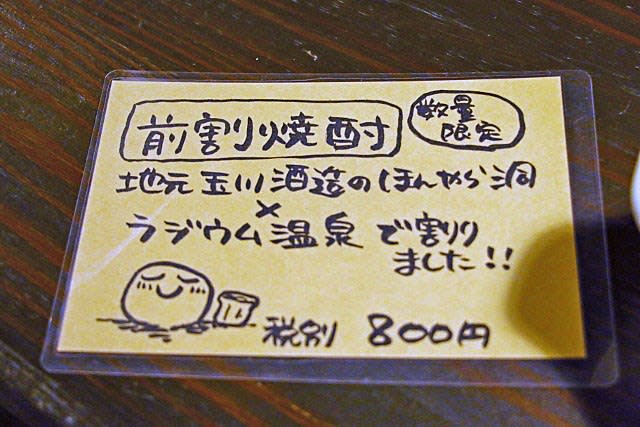 前割り焼酎
数量
限定
地元 玉川酒造のほんやら洞
×
ラジウム温泉 で割り
ました!!
税別 800円